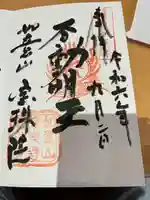 奉拝
令和六年
九月二日
不動明王
如意山
宝珠院